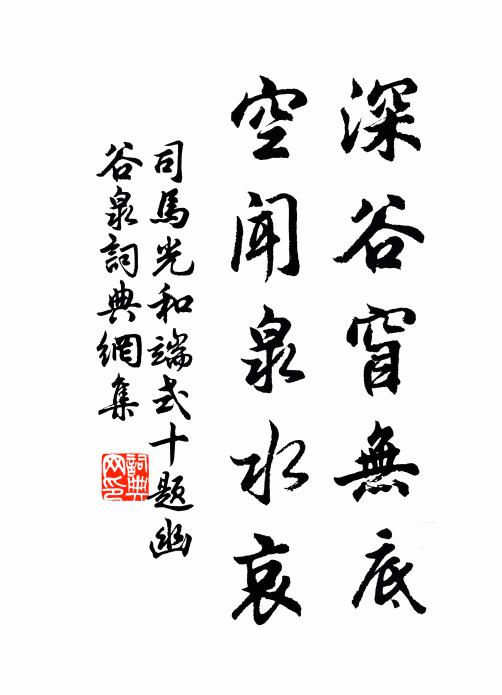 深谷窅無底
空聞泉水哀
司馬光和端式十題幽
谷泉詞典網集
詞典网印